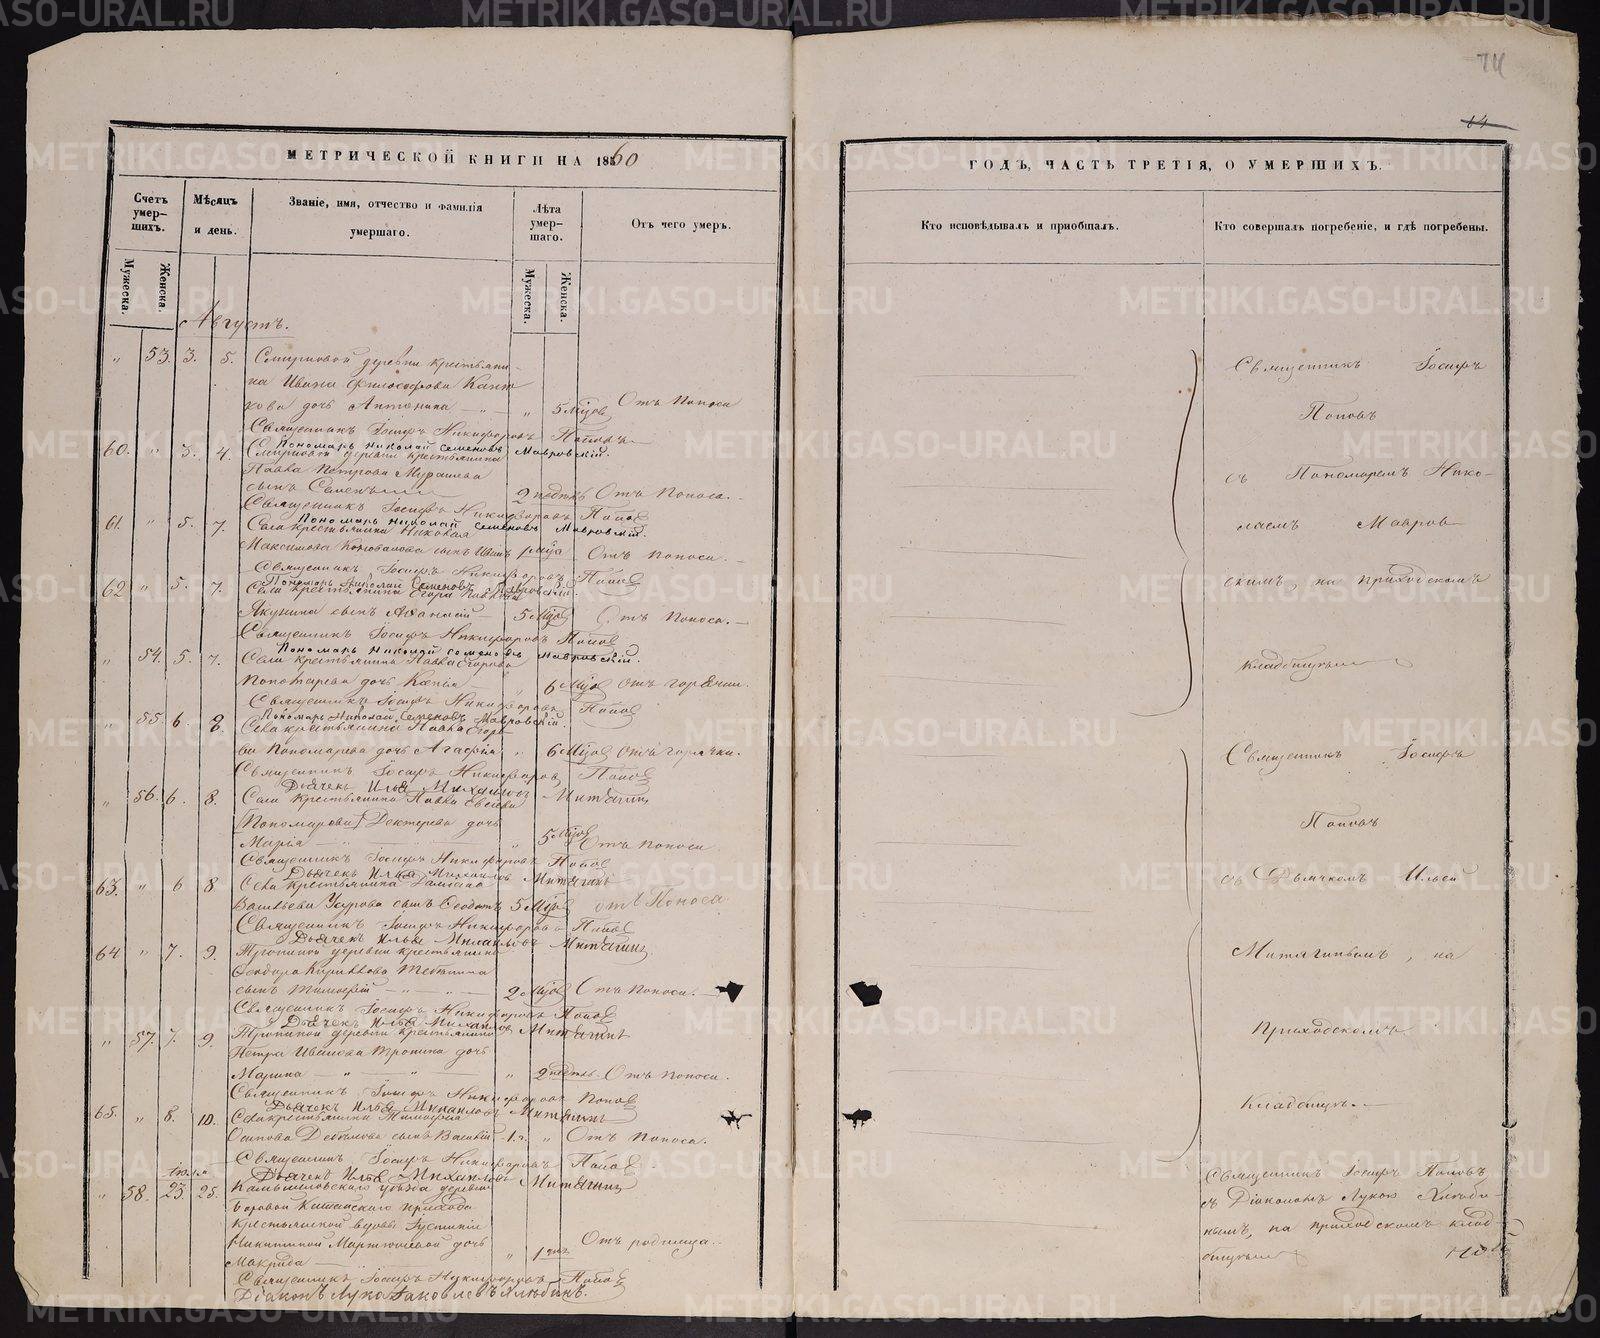 74
64
МЕТРИЧЕСКОЙ КНИГИ НА 1860
Счетъ умер-
шихъ.
Мѣсяцъ
и день.
Званіе, имя, отчество и фамилія
умершаго.
Лѣта
умер-
шаго.
Отъ чего умеръ.
Мужеска.
Женска.
Мужеска.
Женска.
Августъ.
„ 53. 3. 5. Смирновой деревни крестьяни-
на Ивана Философова
дочь Антонина „ 5 Мцов Отъ поноса
Священникъ Іосифъ Никифоровъ Поповъ
Пономарь Николай Семеновъ Мавровскій.
60. „ 3. 4. Смирновой деревни крестьянина
Павла Петрова
сынъ Семенъ 2 недѣль Отъ поноса.
Священникъ Іосифъ Никифоровъ Попов
Пономарь Николай Семеновъ Мавровскій.
61. „ 5. 7. Села крестьянина Николая
Максимова Коновалова сынъ Иванъ 1 Мца Отъ поноса.
Священникъ Іосифъ Никифоровъ Попов
Пономарь Николай Семеновъ Мавровскій.
62 „ 5. 7. Села крестьянина Егора
Якунина сынъ Аѳанасій 5 Мцов Отъ поноса.
Священникъ Іосифъ Никифоровъ Попов
Пономарь Николай Семеновъ Мавровскій.
„ 54. 5. 7. Села крестьянина Павла Егорова
Пономарева дочь „ 6 Мцов Отъ горячки.
Священникъ Іосифъ Никифоровъ Попов
Пономарь Николай Семеновъ Мавровскій.
„ 55. 6. 8. Села крестьянина Павла Егоро
ва Пономарева дочь Агафія „ 6 Мцов Отъ горячки.
Священникъ Іосифъ Никифоровъ Попов
Дьячекъ Илья Михайлов Митягинъ
„ 56. 6. 8. Села крестьянина Павла Евсѣева
Пономарева дочь
Марія „ 5 Мцов Отъ поноса
Священникъ Іосифъ Никифоровъ Попов
Дьячекъ Илья Михаиловъ Митягинъ
63. „ 6 8 Села крестьянина
Васильева сынъ Ѳеодотъ 5 Мцов отъ поноса
Священникъ Іосифъ Никифоровъ Попов
Дьячекъ Илья Михаиловъ Митягинъ
64 „ 7. 9. Тропиной деревни крестьянина
Ѳеодора Кирилова
сынъ Тимоѳей 2 Мцов Отъ поноса.
Священникъ Іосифъ Никифоровъ Попов
Дьячекъ Илья Михаиловъ Митягинъ
„ 57. 7. 9. Тропиной деревни крестьянина
Петра Иванова Тропина дочь
Марина „ 2 недѣль Отъ поноса.
Священникъ Іосифъ Никифоровъ Попов
Дьячекъ Илья Михаиловъ Митягинъ
65. „ 8. 10. Села крестьянина Тимофея
Осипова сынъ Василій 1 г. „ Отъ поноса.
Священникъ Іосифъ Никифоровъ Попов
Дьячекъ Илья Михаиловъ Митягинъ
Іюля
„ 58. 23 25. Камышловскаго уѣзда деревни
Боровой прихода
крестьянской вдовы Іустиніи
Никитиной Мартюшевой дочь
Макрида „ 1 дня Отъ родимца.
Священникъ Іосифъ Никифоровъ Попов
Діаконъ Лука Яковлевъ Хлюбинъ.
ГОДЪ, ЧАСТЬ ТРЕТІЯ, О УМЕРШИХЪ.
Кто исповѣдывалъ и пріобщалъ.
Кто совершалъ погребеніе, и гдѣ погребены.
Священникъ Іосифъ
Поповъ
съ Пономаремъ Нико-
лаемъ Мавров-
скимъ, на приходскомъ
кладбищѣ
Священникъ Іосифъ
Поповъ
съ Дьячкомъ Ильей
Митягинымъ, на
Приходскомъ
кладбищѣ.
Священникъ Іосифъ Поповъ
съ Діакономъ Лукою Хлюби-
нымъ, на приходскомъ клад-
бищѣ
METRIKI.GASO-URAL.RU